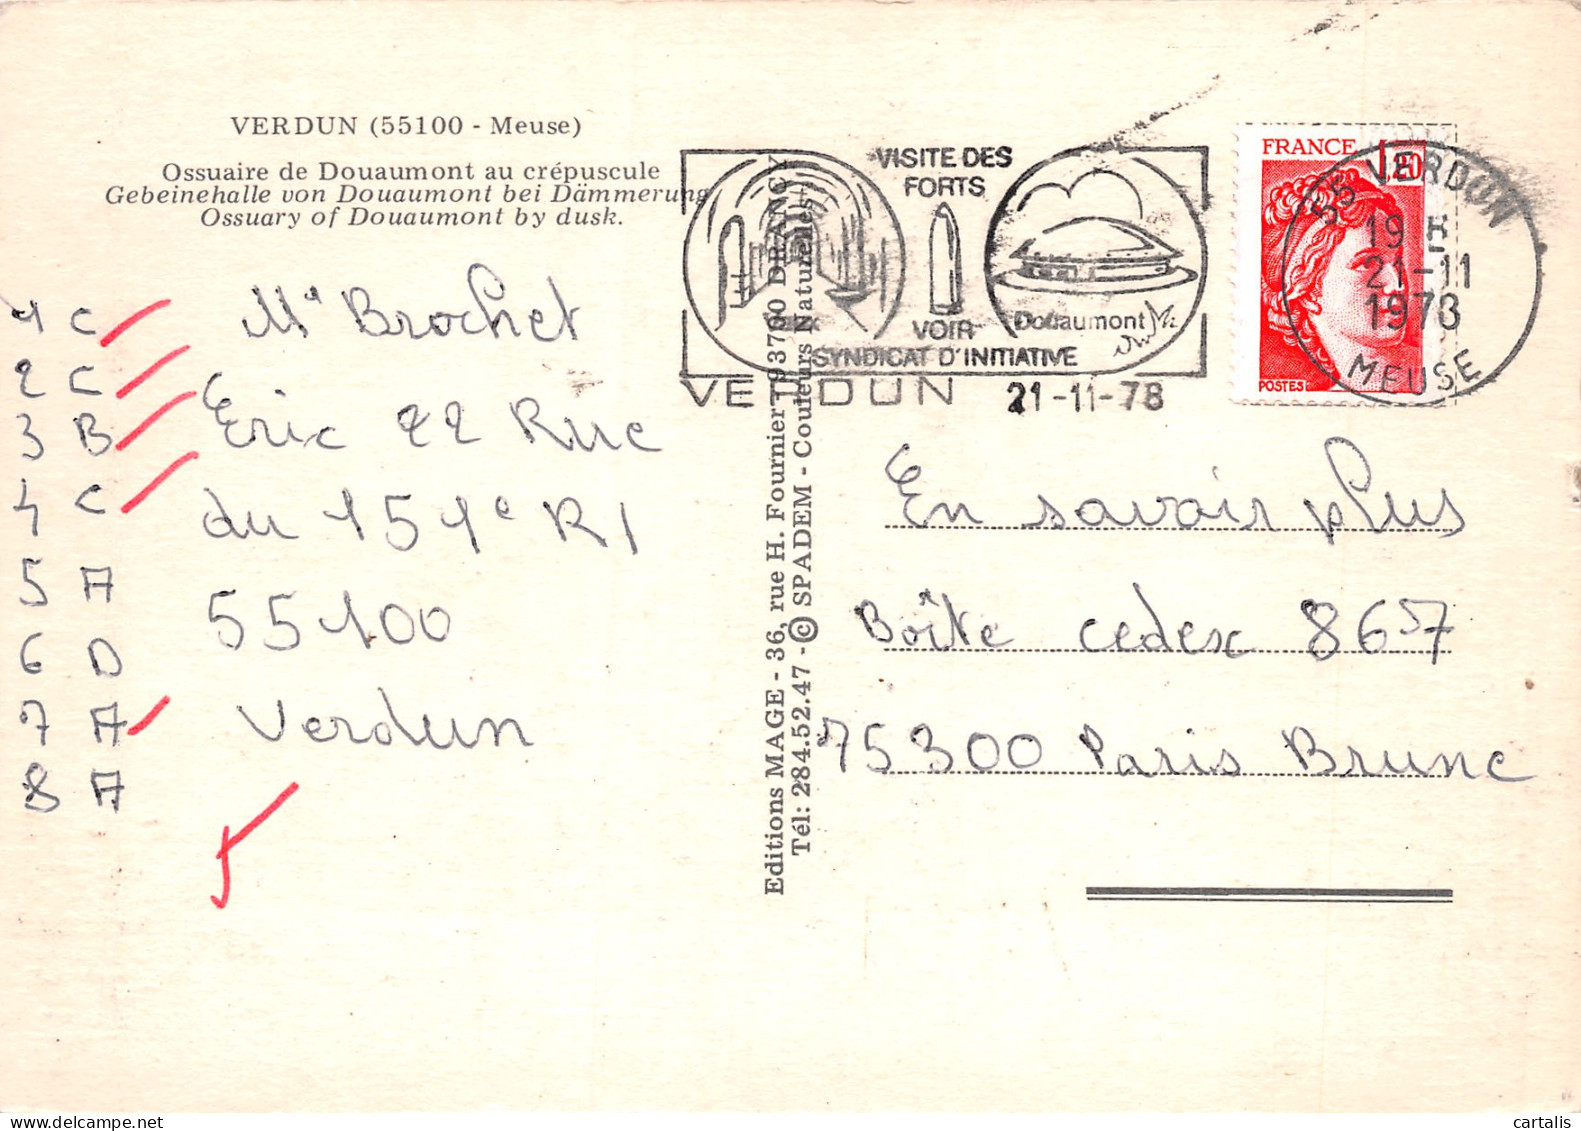 VERDUN (55100 - Meuse)
Ossuaire de Douaumont au crépuscule
Gebeinehalle von Douaumont bei Dämmerung
Ossuary of Douaumont by dusk.
1 C
2 C
3 B
4 C
5 A
6 D
7 A
8 A
5
Mr Brochet
Eric 22 Rue
du 151e RI
55100
Verdun
Editions MAGE - 36, rue H. Fournier - 93700 DRANCY
Tél: 284.52.47 - © SPADEM - Couleurs Naturelles
VISITE DES
FORTS
VOIR
SYNDICAT D'INITIATIVE
Douaumont
VERDUN 21-11-78
FRANCE 1,20
POSTES
55 VERDUN
19 H
21-11
1978
MEUSE
En savoir plus
Boîte cedex 867
75300 Paris Brune
cartalis